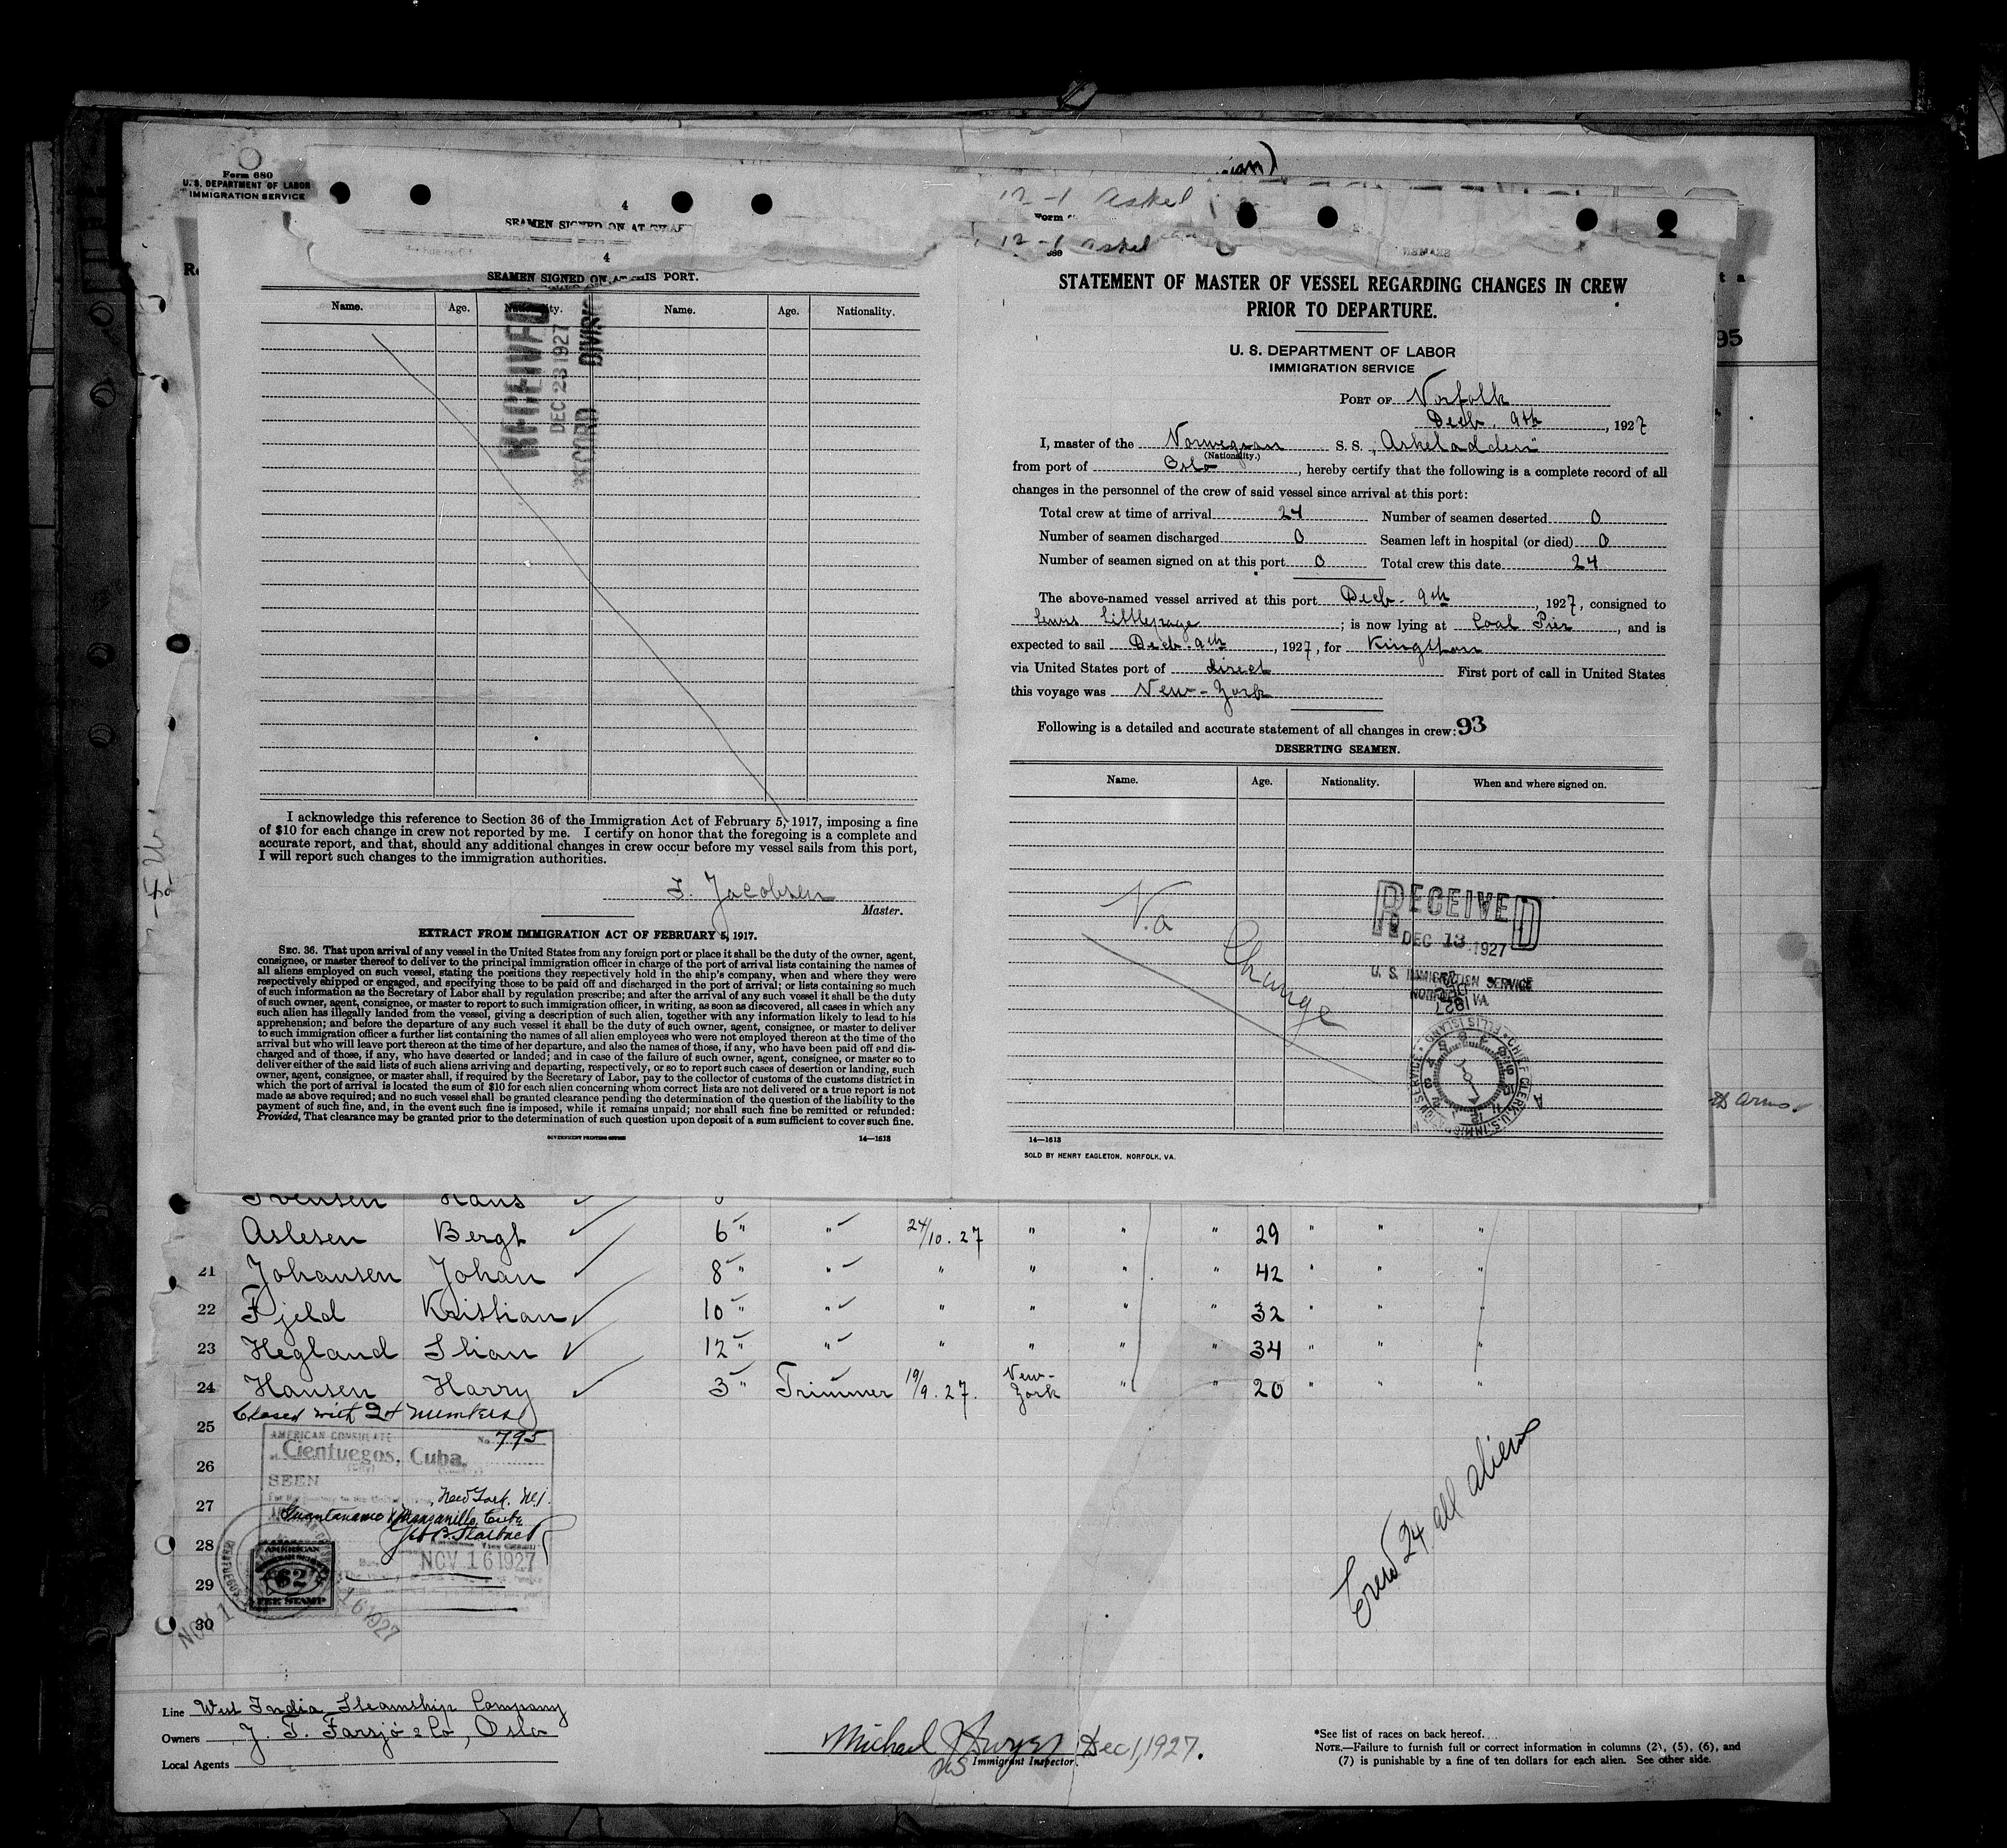 Form 680
U. S. DEPARTMENT OF LABOR
IMMIGRATION SERVICE
4
SEAMEN SIGNED ON AT
12-1 Askel
Form
4
12-1 Askel
SEAMEN SIGNED ON AT THIS PORT.
Name. Age. Nationality. Name. Age. Nationality.
RECEIVED
DEC 23 1927
RECORD DIVISION
I acknowledge this reference to Section 36 of the Immigration Act of February 5, 1917, imposing a fine
of $10 for each change in crew not reported by me. I certify on honor that the foregoing is a complete and
accurate report, and that, should any additional changes in crew occur before my vessel sails from this port,
I will report such changes to the immigration authorities.
T. Jacobsen
Master.
EXTRACT FROM IMMIGRATION ACT OF FEBRUARY 5, 1917.
SEC. 36. That upon arrival of any vessel in the United States from any foreign port or place it shall be the duty of the owner, agent,
consignee, or master thereof to deliver to the principal immigration officer in charge of the port of arrival lists containing the names of
all aliens employed on such vessel, stating the positions they respectively hold in the ship's company, when and where they were
respectively shipped or engaged, and specifying those to be paid off and discharged in the port of arrival; or lists containing so much
of such information as the Secretary of Labor shall by regulation prescribe; and after the arrival of any such vessel it shall be the duty
of such owner, agent, consignee, or master to report to such immigration officer, in writing, as soon as discovered, all cases in which any
such alien has illegally landed from the vessel, giving a description of such alien, together with any information likely to lead to his
apprehension; and before the departure of any such vessel it shall be the duty of such owner, agent, consignee, or master to deliver
to such immigration officer a further list containing the names of all alien employees who were not employed thereon at the time of the
arrival but who will leave port thereon at the time of her departure, and also the names of those, if any, who have been paid off and dis-
charged and of those, if any, who have deserted or landed; and in case of the failure of such owner, agent, consignee, or master so to
deliver either of the said lists of such aliens arriving and departing, respectively, or so to report such cases of desertion or landing, such
owner, agent, consignee, or master shall, if required by the Secretary of Labor, pay to the collector of customs of the customs district in
which the port of arrival is located the sum of $10 for each alien concerning whom correct lists are not delivered or a true report is not
made as above required; and no such vessel shall be granted clearance pending the determination of the question of the liability to the
payment of such fine, and, in the event such fine is imposed, while it remains unpaid; nor shall such fine be remitted or refunded:
Provided, That clearance may be granted prior to the determination of such question upon deposit of a sum sufficient to cover such fine.
GOVERNMENT PRINTING OFFICE 14—1613
STATEMENT OF MASTER OF VESSEL REGARDING CHANGES IN CREW
PRIOR TO DEPARTURE.
U. S. DEPARTMENT OF LABOR
IMMIGRATION SERVICE
PORT OF Norfolk
Decb. 9th, 1927
I, master of the Norwegian S. S. „Askeladden"
(Nationality.)
from port of Oslo, hereby certify that the following is a complete record of all
changes in the personnel of the crew of said vessel since arrival at this port:
Total crew at time of arrival 24 Number of seamen deserted 0
Number of seamen discharged 0 Seamen left in hospital (or died) 0
Number of seamen signed on at this port 0 Total crew this date 24
The above-named vessel arrived at this port Decb. 9th, 1927, consigned to
Lewis Littlepage; is now lying at Coal Pier, and is
expected to sail Decb. 9th, 1927, for Kingston
via United States port of direct First port of call in United States
this voyage was New-York
Following is a detailed and accurate statement of all changes in crew: 93
DESERTING SEAMEN.
Name. Age. Nationality. When and where signed on.
No Change
RECEIVED
DEC 13 1927
U. S. IMMIGRATION SERVICE
NORFOLK, VA.
14—1613
SOLD BY HENRY EAGLETON, NORFOLK, VA.
95
Svensen Hans
Aslesen Bergt 6 " " 24/10.27 " " " 29 " " "
21 Johansen Johan 8 " " " " " " 42 " " "
22 Fjeld Kristian 10 " " " " " " 32 " " "
23 Hegland Stian 12 " " " " " " 34 " " "
24 Hansen Harry 3 " Trimmer 19/9.27. New-York " " 20 " " "
Closed with 24 numbers
25
26
27
28
29
30
AMERICAN CONSULATE
at Cienfuegos, Cuba. No 795
SEEN
New York. N.Y.
Guantanamo & Manzanillo, Cuba
NOV 16 1927
AMERICAN
$2
FEE STAMP
NOV 16 1927
Crew 24 all aliens
Line West India Steamship Company
Owners J. T. Farsjö & Co, Oslo
Local Agents
Michael
Immigrant Inspector.
Dec 1, 1927.
*See list of races on back hereof.
NOTE.—Failure to furnish full or correct information in columns (2), (5), (6), and
(7) is punishable by a fine of ten dollars for each alien. See other side.